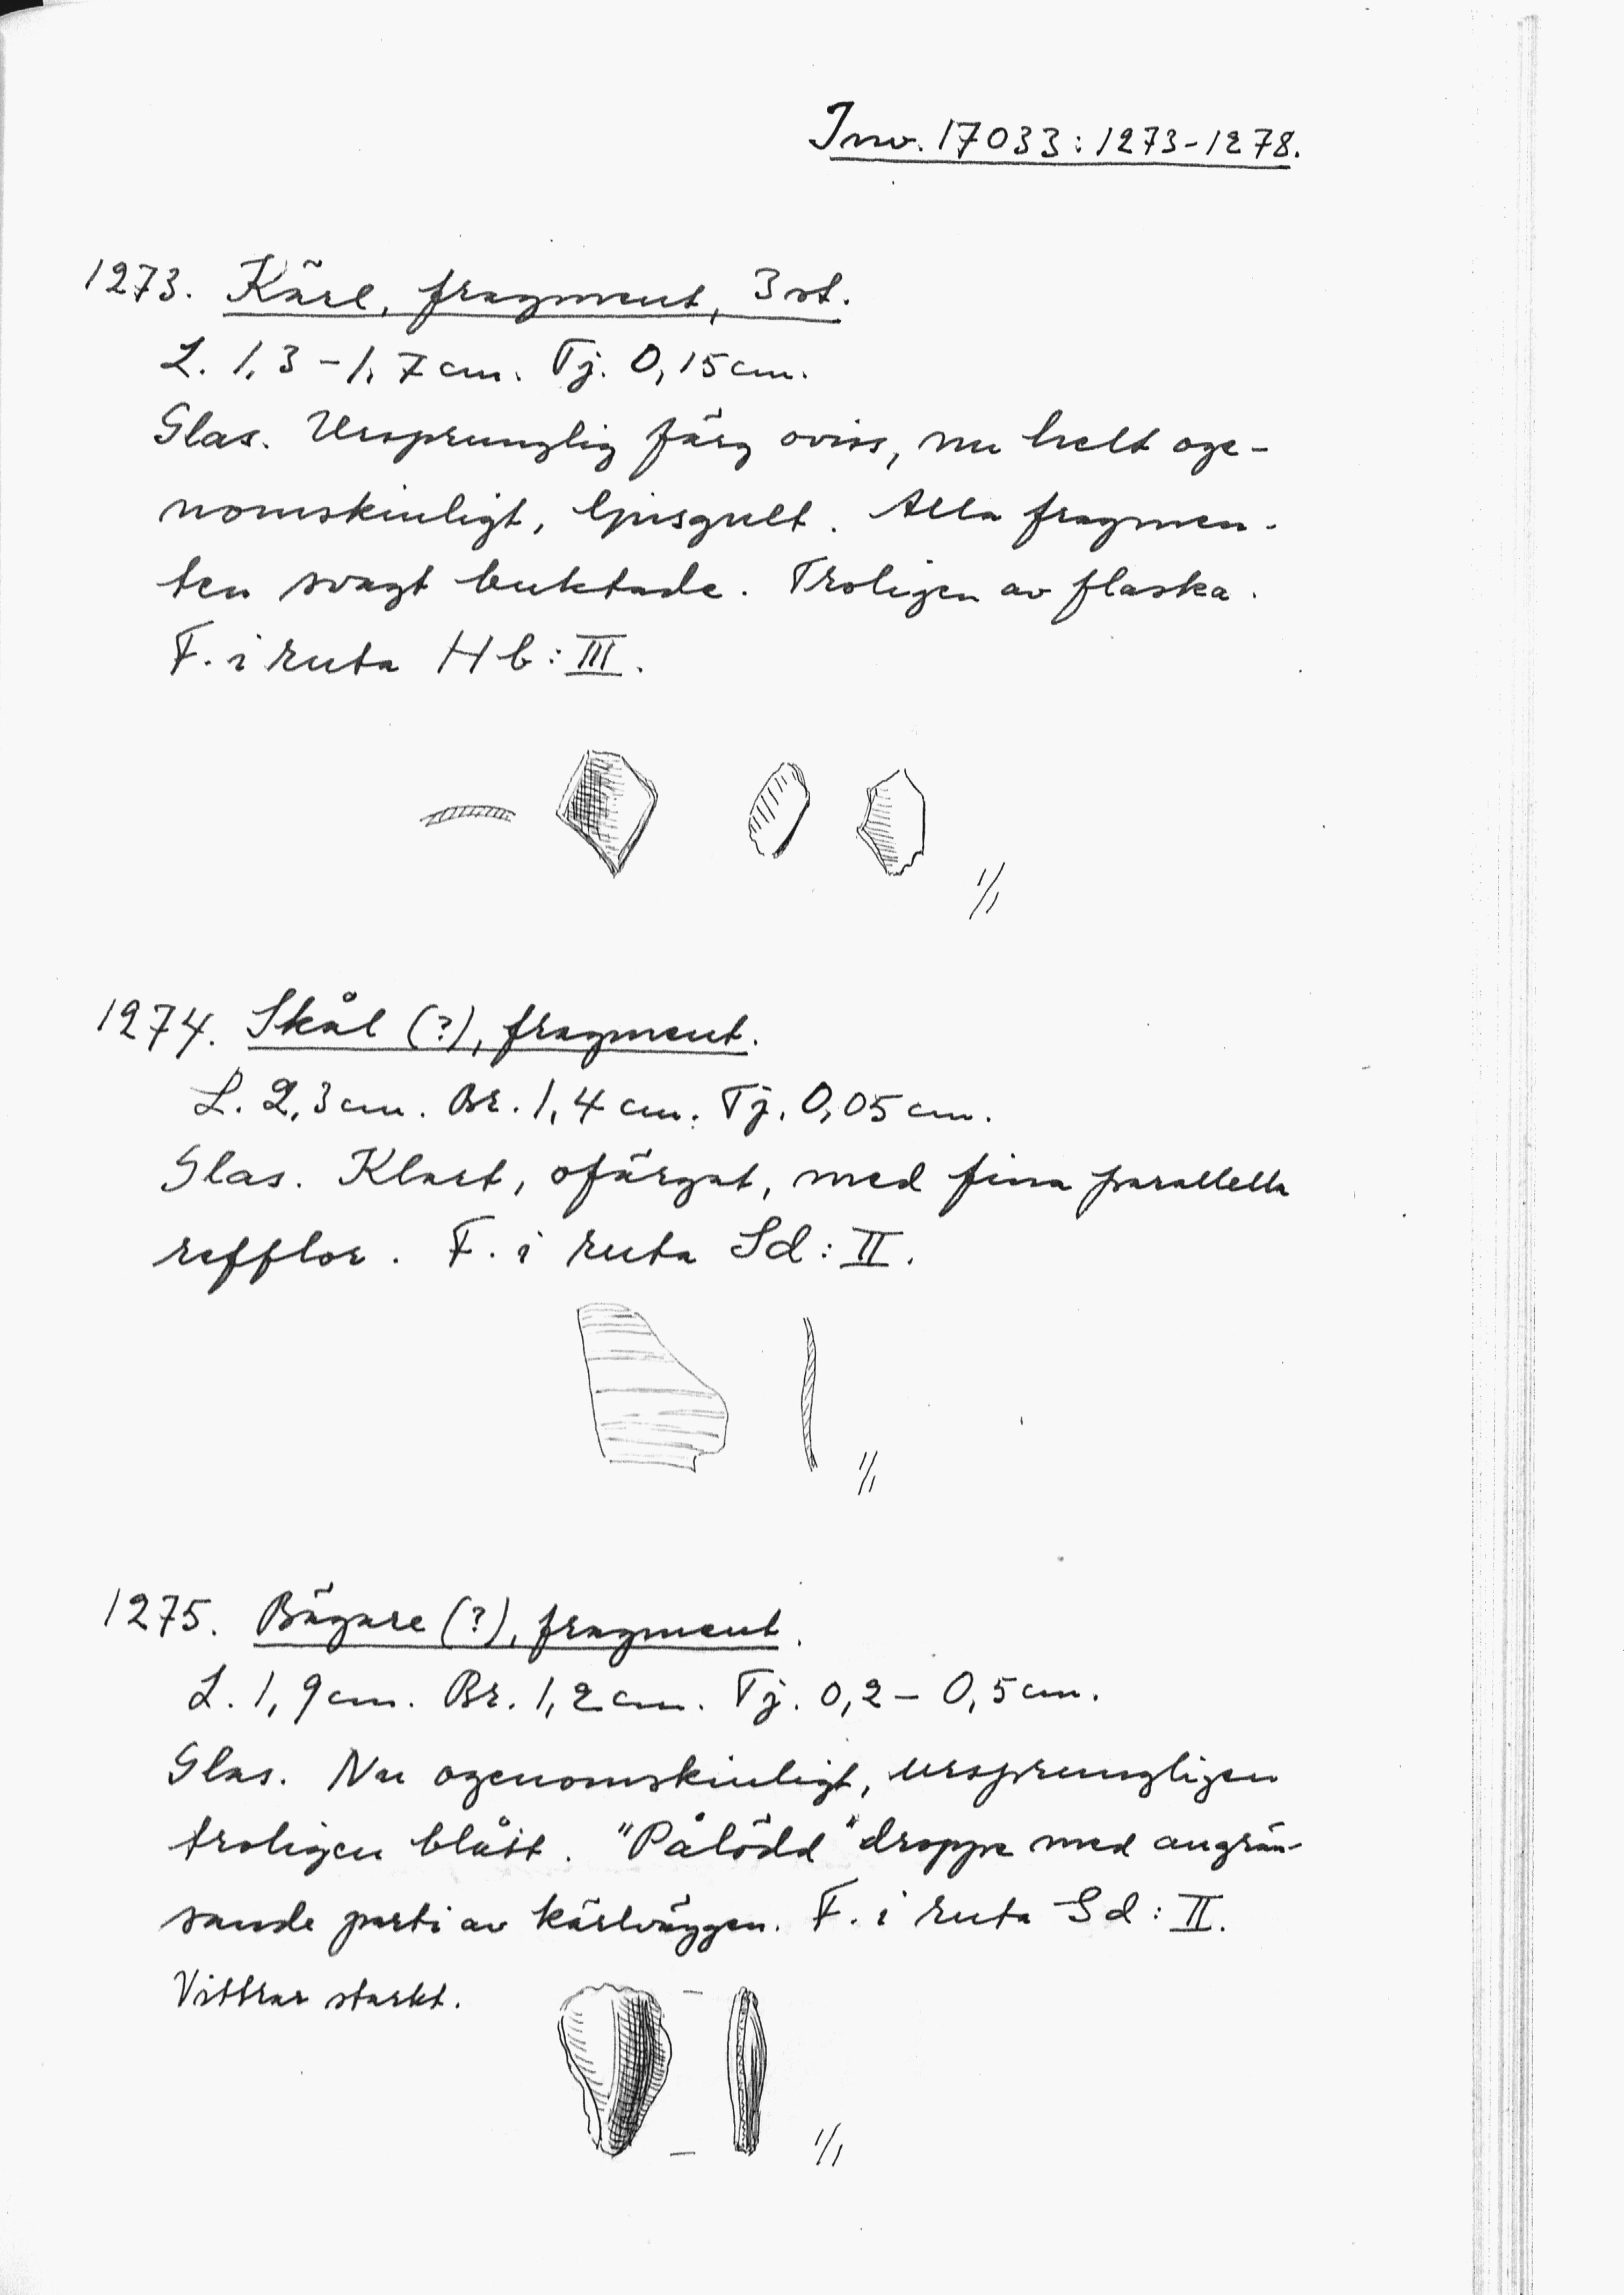 Inv. 17033:1273-1278.
1273. Kärl, fragment, 3 st.
L. 1,3-1,7 cm. Tj. 0,15 cm.
Glas. Ursprunglig färg oviss, nu helt oge-
nomskinligt, ljusgult. Alla fragmen-
ten svagt buktade. Troligen av flaska.
F. i ruta Hb:III.
1/1
1274. Skål (?), fragment.
L. 2,3 cm. Br. 1,4 cm. Tj. 0,05 cm.
Glas. Klart, ofärgat, med fina parallella
refflor. F. i ruta Sd:II.
1/1
1275. Bägare (?), fragment.
L. 1,9 cm. Br. 1,2 cm. Tj. 0,2-0,5 cm.
Glas. Nu ogenomskinligt, ursprungligen
troligen blått. "Pålödd" droppe med angrän-
sande parti av kärlväggen. F. i ruta Sd:II.
Vittrar starkt.
1/1